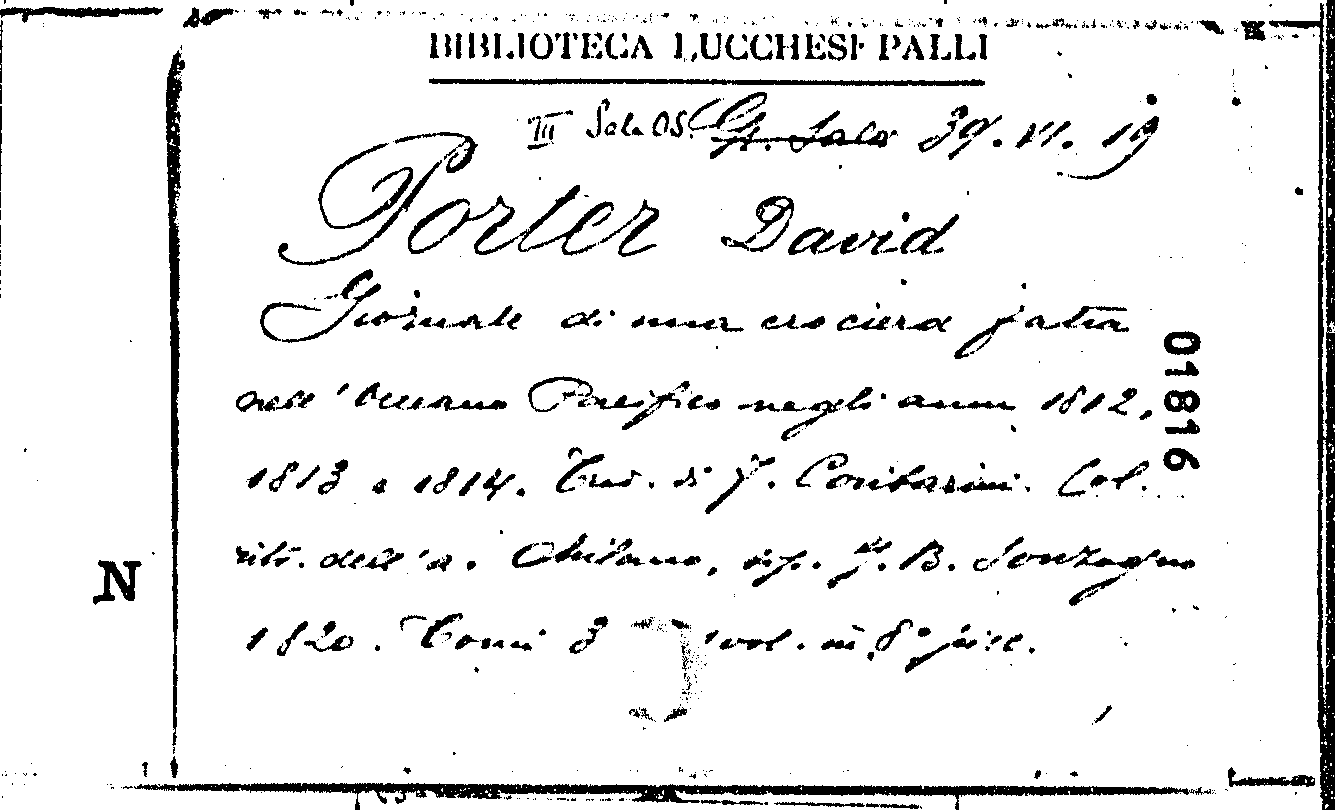 BIBLIOTECA LUCCHESI PALLI
III Sala OS. Gr. Sala 39. VI. 19
Porter David
Giornale di una crociera fatta
nell'Oceano Pacifico negli anni 1812,
1813 e 1814. Trad. di F. Contarini. Col.
rit. dell'a. Milano, tip. G. B. Sonzogno
1820. Tomi 3 1 vol. in 8° picc.
01816
N